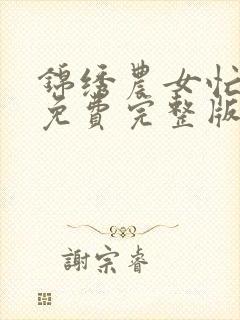 錦绣農女忙
免費完整版
謝宗睿